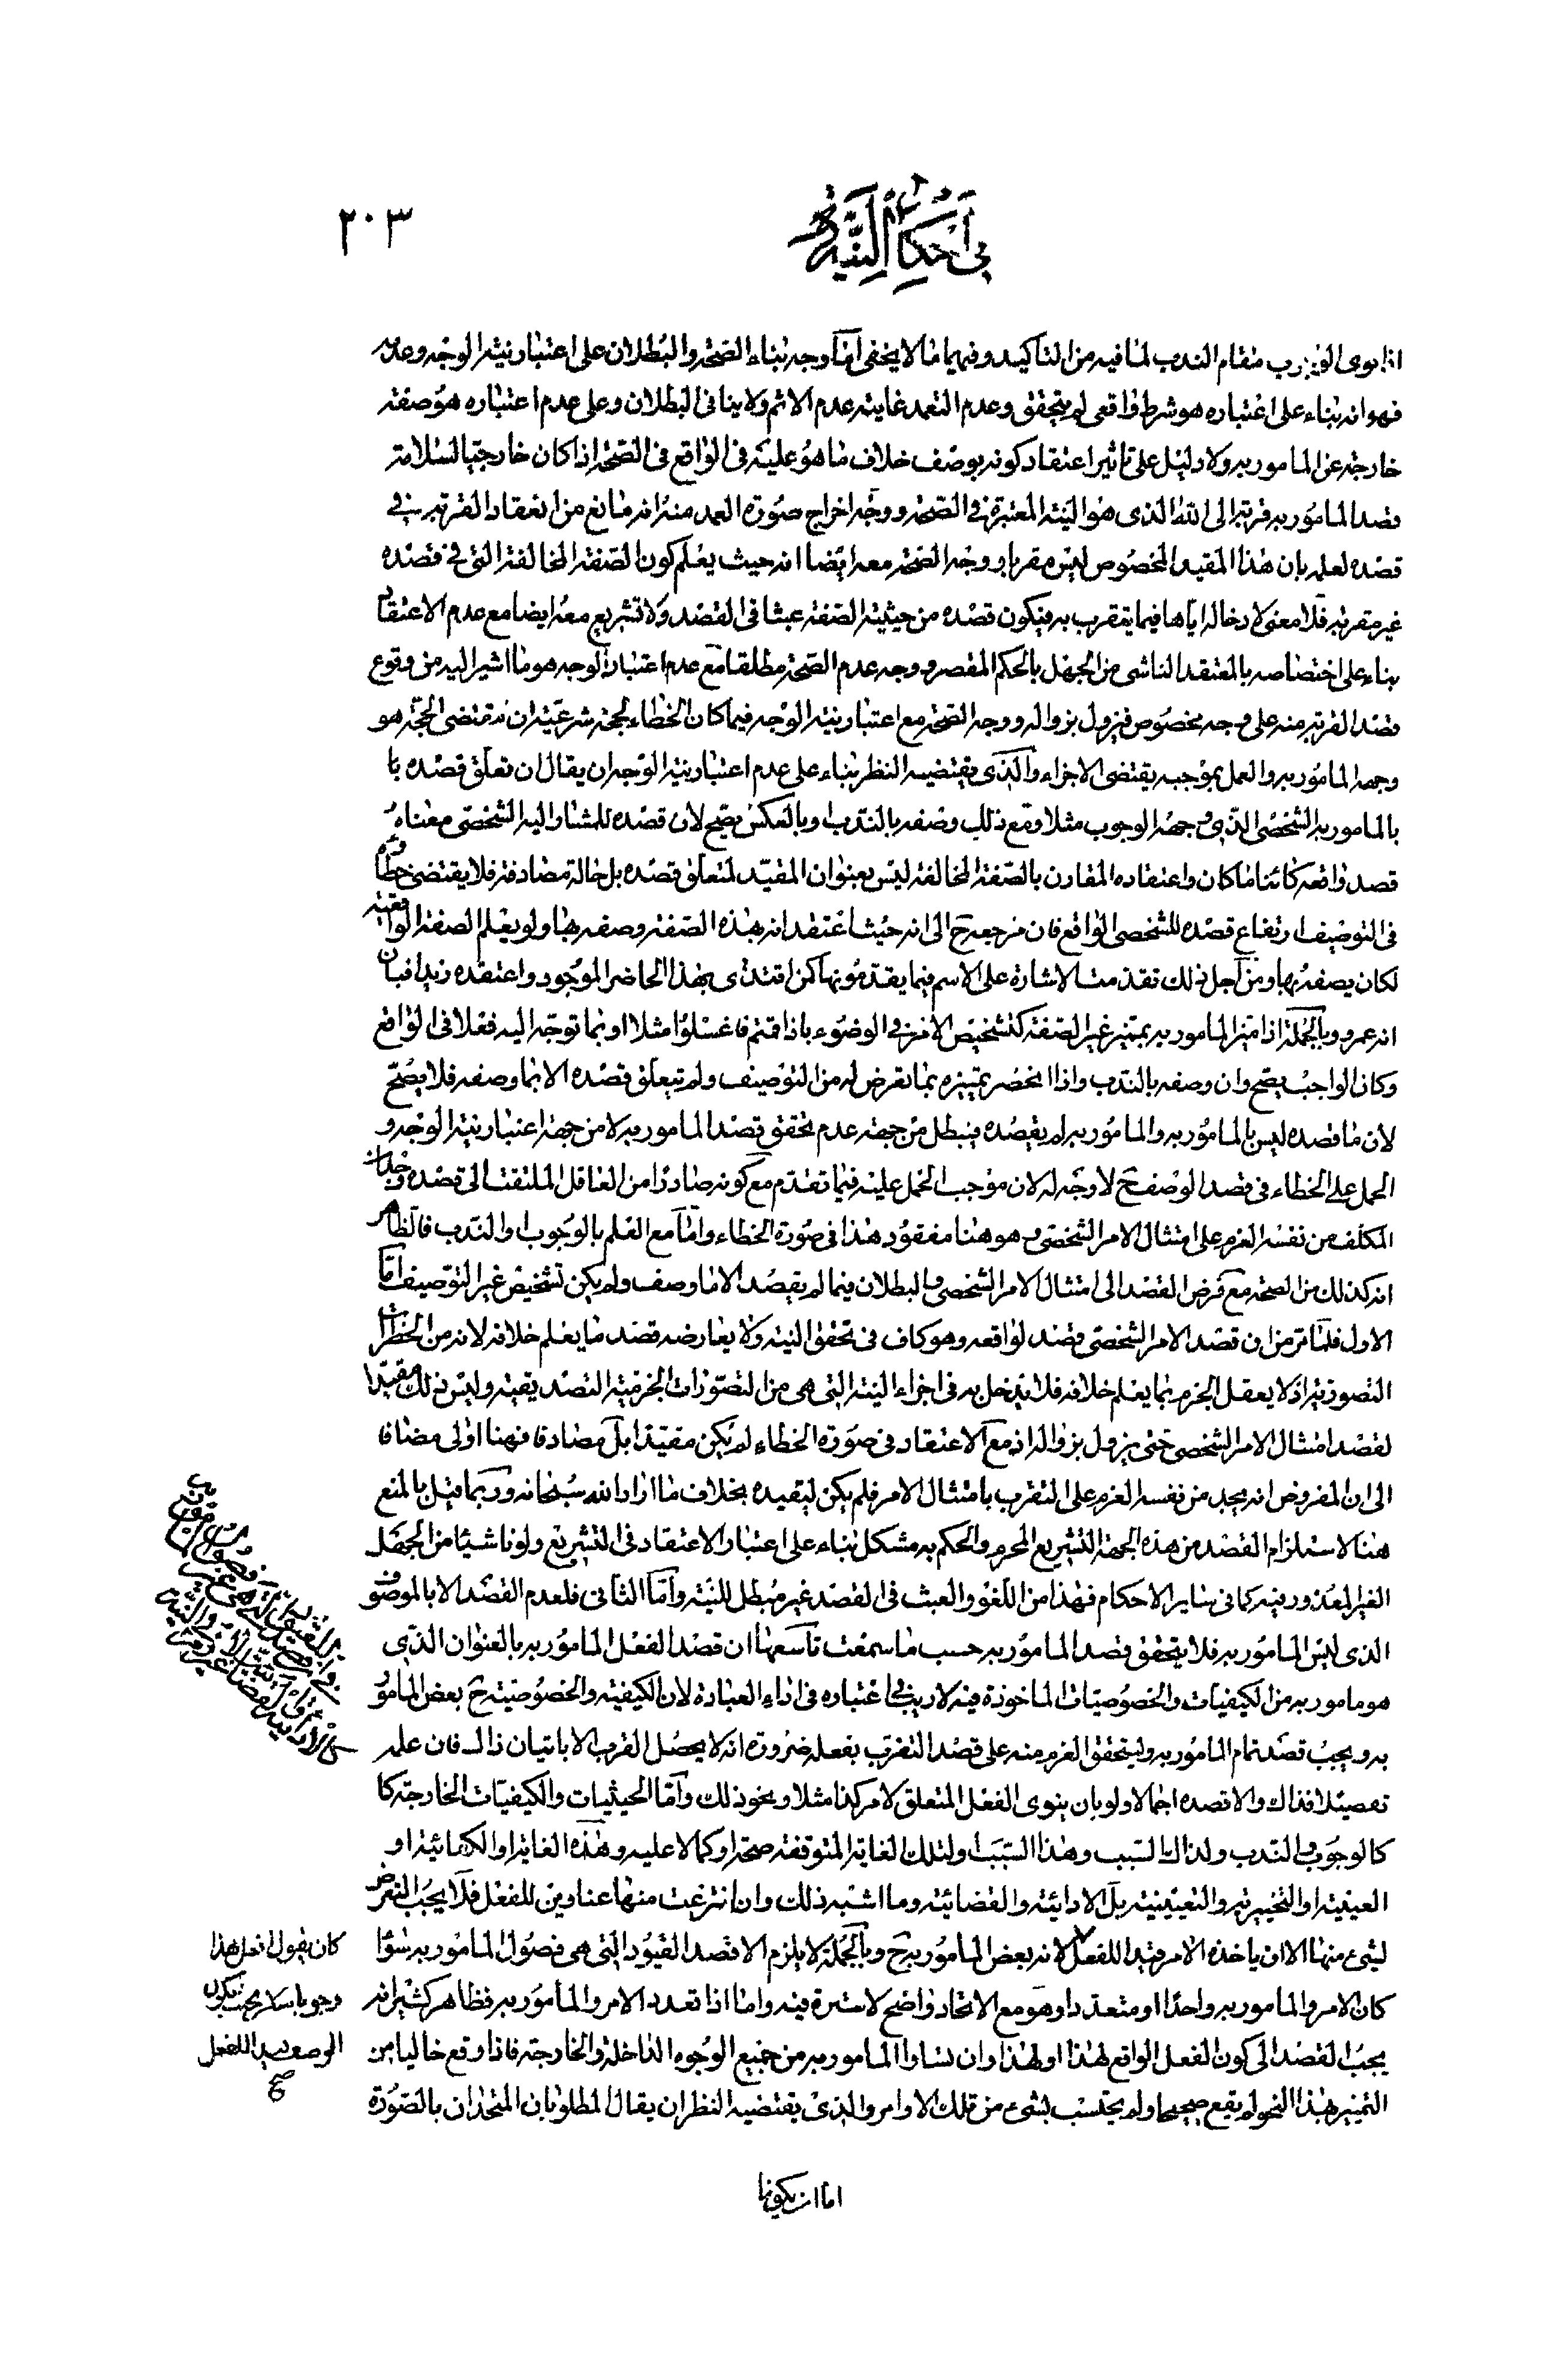 في أحكام النية
٢٠٣
اذا نوى الوجوب مقام الندب لما فيه من التاكيد وفيهما ما لا يخفى امّا وجه بناء الصّحة والبُطلان على اعتبار نيته الوجه وعدمه
فهو انه بناء على اعتباره هو شرط واقعى لم يتحقق وعدم التعمد غايته عدم الاثم ولا ينافى البطلان وعلى عدم اعتباره هو صفته
خارجة عن المامور به ولا دليل على تاثير اعتقاد كونه بوصف خلاف ما هو عليه فى الواقع فى الصّحة اذا كان خارجيّا لسلامة
قصد المامور به قربة الى الله الذى هو النية المعتبرة فى الصّحة ووجه اخراج صورة العمد منه انه مانع من انعقاد القربة به فى
قصده لعلمه بان هذا المقيد المخصوص ليس مقربا ووجه الصّحة معه ايضا انه حيث يعلم كون الصّفة المخالفة التى فى قصده
غير مقربة فلا معنى لادخاله اياها فيما يتقرب به فيكون قصده من حيثية الصّفة عبثا فى القصد ولا تشريع معه ايضا مع عدم الاعتقاد
بناء على اختصاصه بالمعتقد الناشى من الجهل بالحكم المقصر ووجه عدم الصّحة مطلقا مع عدم اعتبار الوجه هو ما اشير اليه من وقوع
قصد القربة منه على وجه مخصوص فيزول بزواله ووجه الصّحة مع اعتبار نية الوجه فيما كان الخطاء لحجة شرعية ان مقتضى الحجّة هو
وجه المامور به والعمل بموجبه يقتضى الاجزاء والّذى يقتضيه النظر بناء على عدم اعتبار نية الوجه ان يقال ان تعلق قصده با
بالمامور به الشخصى الذى وجهه الوجوب مثلا ومع ذلك وصفه بالندب او بالعكس يصح لان قصده للمشار اليه الشخصى معناه
قصد واقعه كائنا ما كان واعتقاده المقارن بالصّفة المخالفة ليس بعنوان المقيّد لمتعلق قصده بل حالة مصادفة فلا يقتضى خطأه
فى التوصيف ارتفاع قصده للشخصى الواقع فان مرجعه ح الى انه حيث اعتقد انه بهذه الصّفة وصفه بها ولو يعلم الصفة الواقعية
لكان يصفه بها ومن اجل ذلك تقدمت الاشارة على الاسم فيما يقدمونها كمن اقتدى بهذا الحاضر الموجود واعتقده زيدا فبان
انه عمرو وبالجملة اذا تميز المامور به بمميز غير الصّفة كتشخيص الامر فى الوضوء باذا قمتم فاغسلوا مثلا او بما توجه اليه فعلا فى الواقع
وكان الواجب يصح وان وصفه بالندب واذا انحصر تمييزه بما تعرض له من التوصيف ولم يتعلق قصده الا بما وصفه فلا يصحّ
لان ما قصده ليس بالمامور به والمامور به لم يقصده فيبطل من جهة عدم تحقق قصد المامور به لا من جهة اعتبار نية الوجه و
الحمل على الخطاء فى قصد الوصف ح لا وجه له لان موجب الحمل عليه فيما تقدم مع كونه صادرا من الغافل الملتفت الى قصده وجدان
المكلف من نفسه العزم على امتثال الامر الشخصى وهو هنا مفقود هذا فى صورة الخطاء وامّا مع العلم بالوجوب او الندب فالظاهر
انه كذلك من الصحة مع فرض القصد الى امتثال الامر الشخصى والبطلان فيما لم يقصد الا ما وصف ولم يكن تشخيص غير التوصيف امّا
الاول فلما مر من ان قصد الامر الشخصى قصد لواقعه وهو كاف فى تحقق النية ولا يعارضه قصد ما يعلم خلافه لانه من الخطرات
التصورية اذ لا يعقل الجزم بما يعلم خلافه فلا يدخل به فى اجزاء النية التى هى من التصورات الجزمية التصديقية وليس ذلك مقيّدا
لقصد امتثال الامر الشخصى حتى يزول بزواله اذ مع الاعتقاد فى صورة الخطاء لم يكن مقيّدا بل مصادفا فهنا اولى مضافا
الى ان المفروض انه يجد من نفسه العزم على التقرب بامتثال الامر فلم يكن ليقيده بخلاف ما اراد الله سبحانه وربما قيل بالمنع
هنا لاستلزام القصد من هذه الجهة التشريع المحرم والحكم به مشكل بناء على اعتبار الاعتقاد فى التشريع ولو ناشيا من الجهل
الغير المعذور فيه كما فى ساير الاحكام فهذا من اللغو والعبث فى القصد غير مبطل للنية وامّا الثانى فلعدم القصد الا بالموصوف
الذى ليس المامور به فلا يتحقق قصد المامور به حسب ما سمعت تاسعها ان قصد الفعل المامور به بالعنوان الذى
هو مامور به من الكيفيات والخصوصيات الماخوذة فيه لا ريب فى اعتباره فى اداء العبادة لان الكيفية والخصوصية ح بعض المامور
به ويجب قصد تمام المامور به وليتحقق العزم منه على قصد التقرب بفعله ضرورة انه لا يحصل القرب الا باتيان ذاك فان علمه
تفصيلا فذاك والا قصده اجمالا ولو بان ينوى الفعل المتعلق لامر كذا مثلا ونحو ذلك وامّا الحيثيات والكيفيات الخارجة كا
كالوجوب والندب ولذاك السبب وهذا السبب او لتلك الغاية المتوقفة صحة او كمالا عليه وهذه الغاية او الكفائية او
العينية او التخييرية والتعيينية بل الادائية والقضائية وما اشبه ذلك وان انتزعت منها عناوين للفعل فلا يجب التعرض
لشىء منها الا ان ياخذه الامر قيدا للفعل لانه بعض المامور به ح وبالجملة لا يلزم الا قصد القيود التى هى فصول المامور به سواء
كان الامر والمامور به واحدا او متعددا وهو مع الاتحاد واضح لا سترة فيه وامّا اذا تعدد الامر والمامور به فظاهر كثير انه
يجب القصد الى كون الفعل الواقع لهذا او لهذا وان تساوا المامور به من جميع الوجوه الداخلة والخارجة فاذا وقع خاليا من
التمييز بهذا النحو لم يقع صحيحا ولم يحتسب لشىء من تلك الاوامر والذى يقتضيه النظر ان يقال المطلوبان المتحدان بالصّورة
كان يقول افعل هذا
للفعل
صح
اما ان يكونا